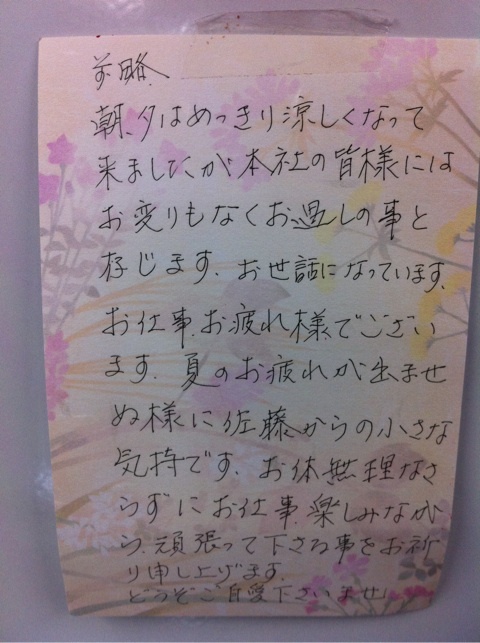 前略、
朝、夕はめっきり涼しくなって
来ましたが本社の皆様には
お変りもなくお過しの事と
存じます。お世話になっています。
お仕事、お疲れ様でござい
ます。夏のお疲れが出ませ
ぬ様に佐藤からの小さな
気持です。お体無理なさ
らずにお仕事、楽しみなが
ら、頑張って下さる事をお祈
り申し上げます。
どうぞご自愛下さいませ